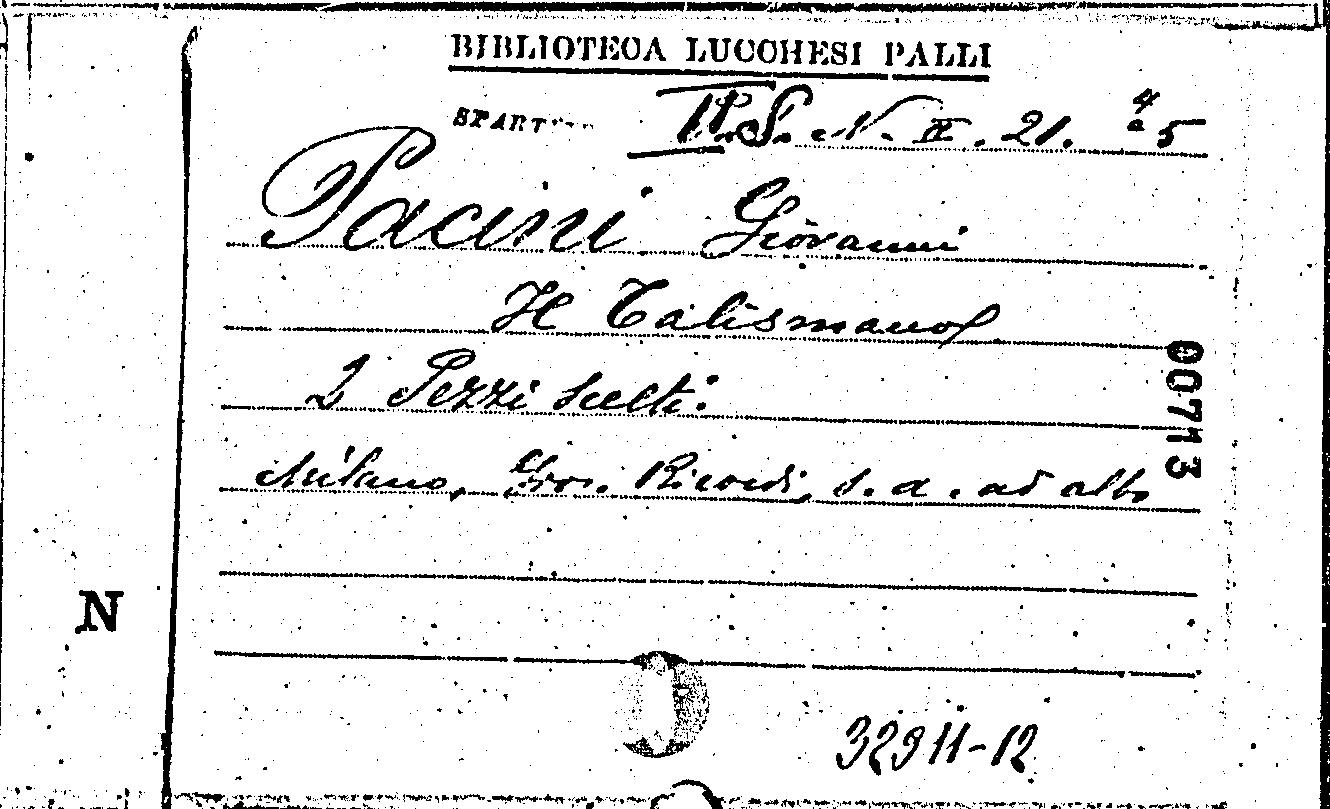 BIBLIOTECA LUCCHESI PALLI
II P.S. N. II. 21. 4 a 5
Pacini Giovanni
Il Talismano
2 Pezzi scelti:
Milano, Gio. Ricordi, s. a. ad albo
00713
N
32911-12